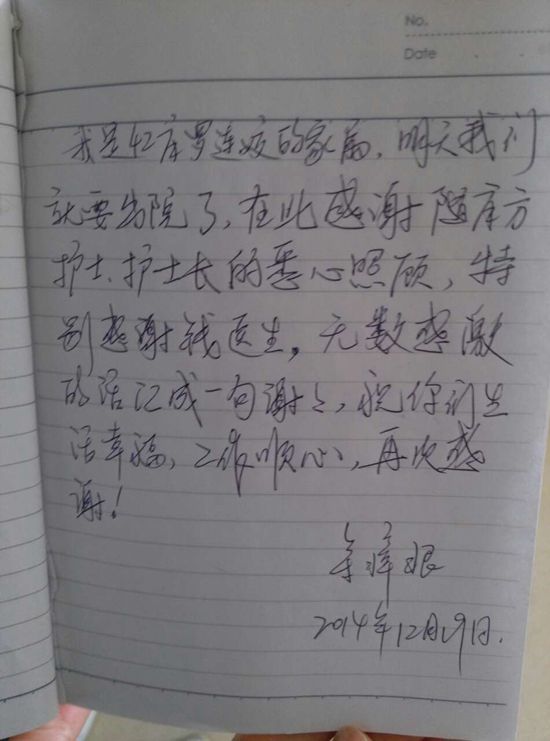 No.
Date
我是42床罗连娣的家属，明天我们
就要出院了，在此感谢随床方
护士、护士长的悉心照顾，特
别感谢钱医生，无数感激
的话汇成一句谢谢，祝你们生
活幸福，工作顺心，再次感
谢！
2014年12月19日.